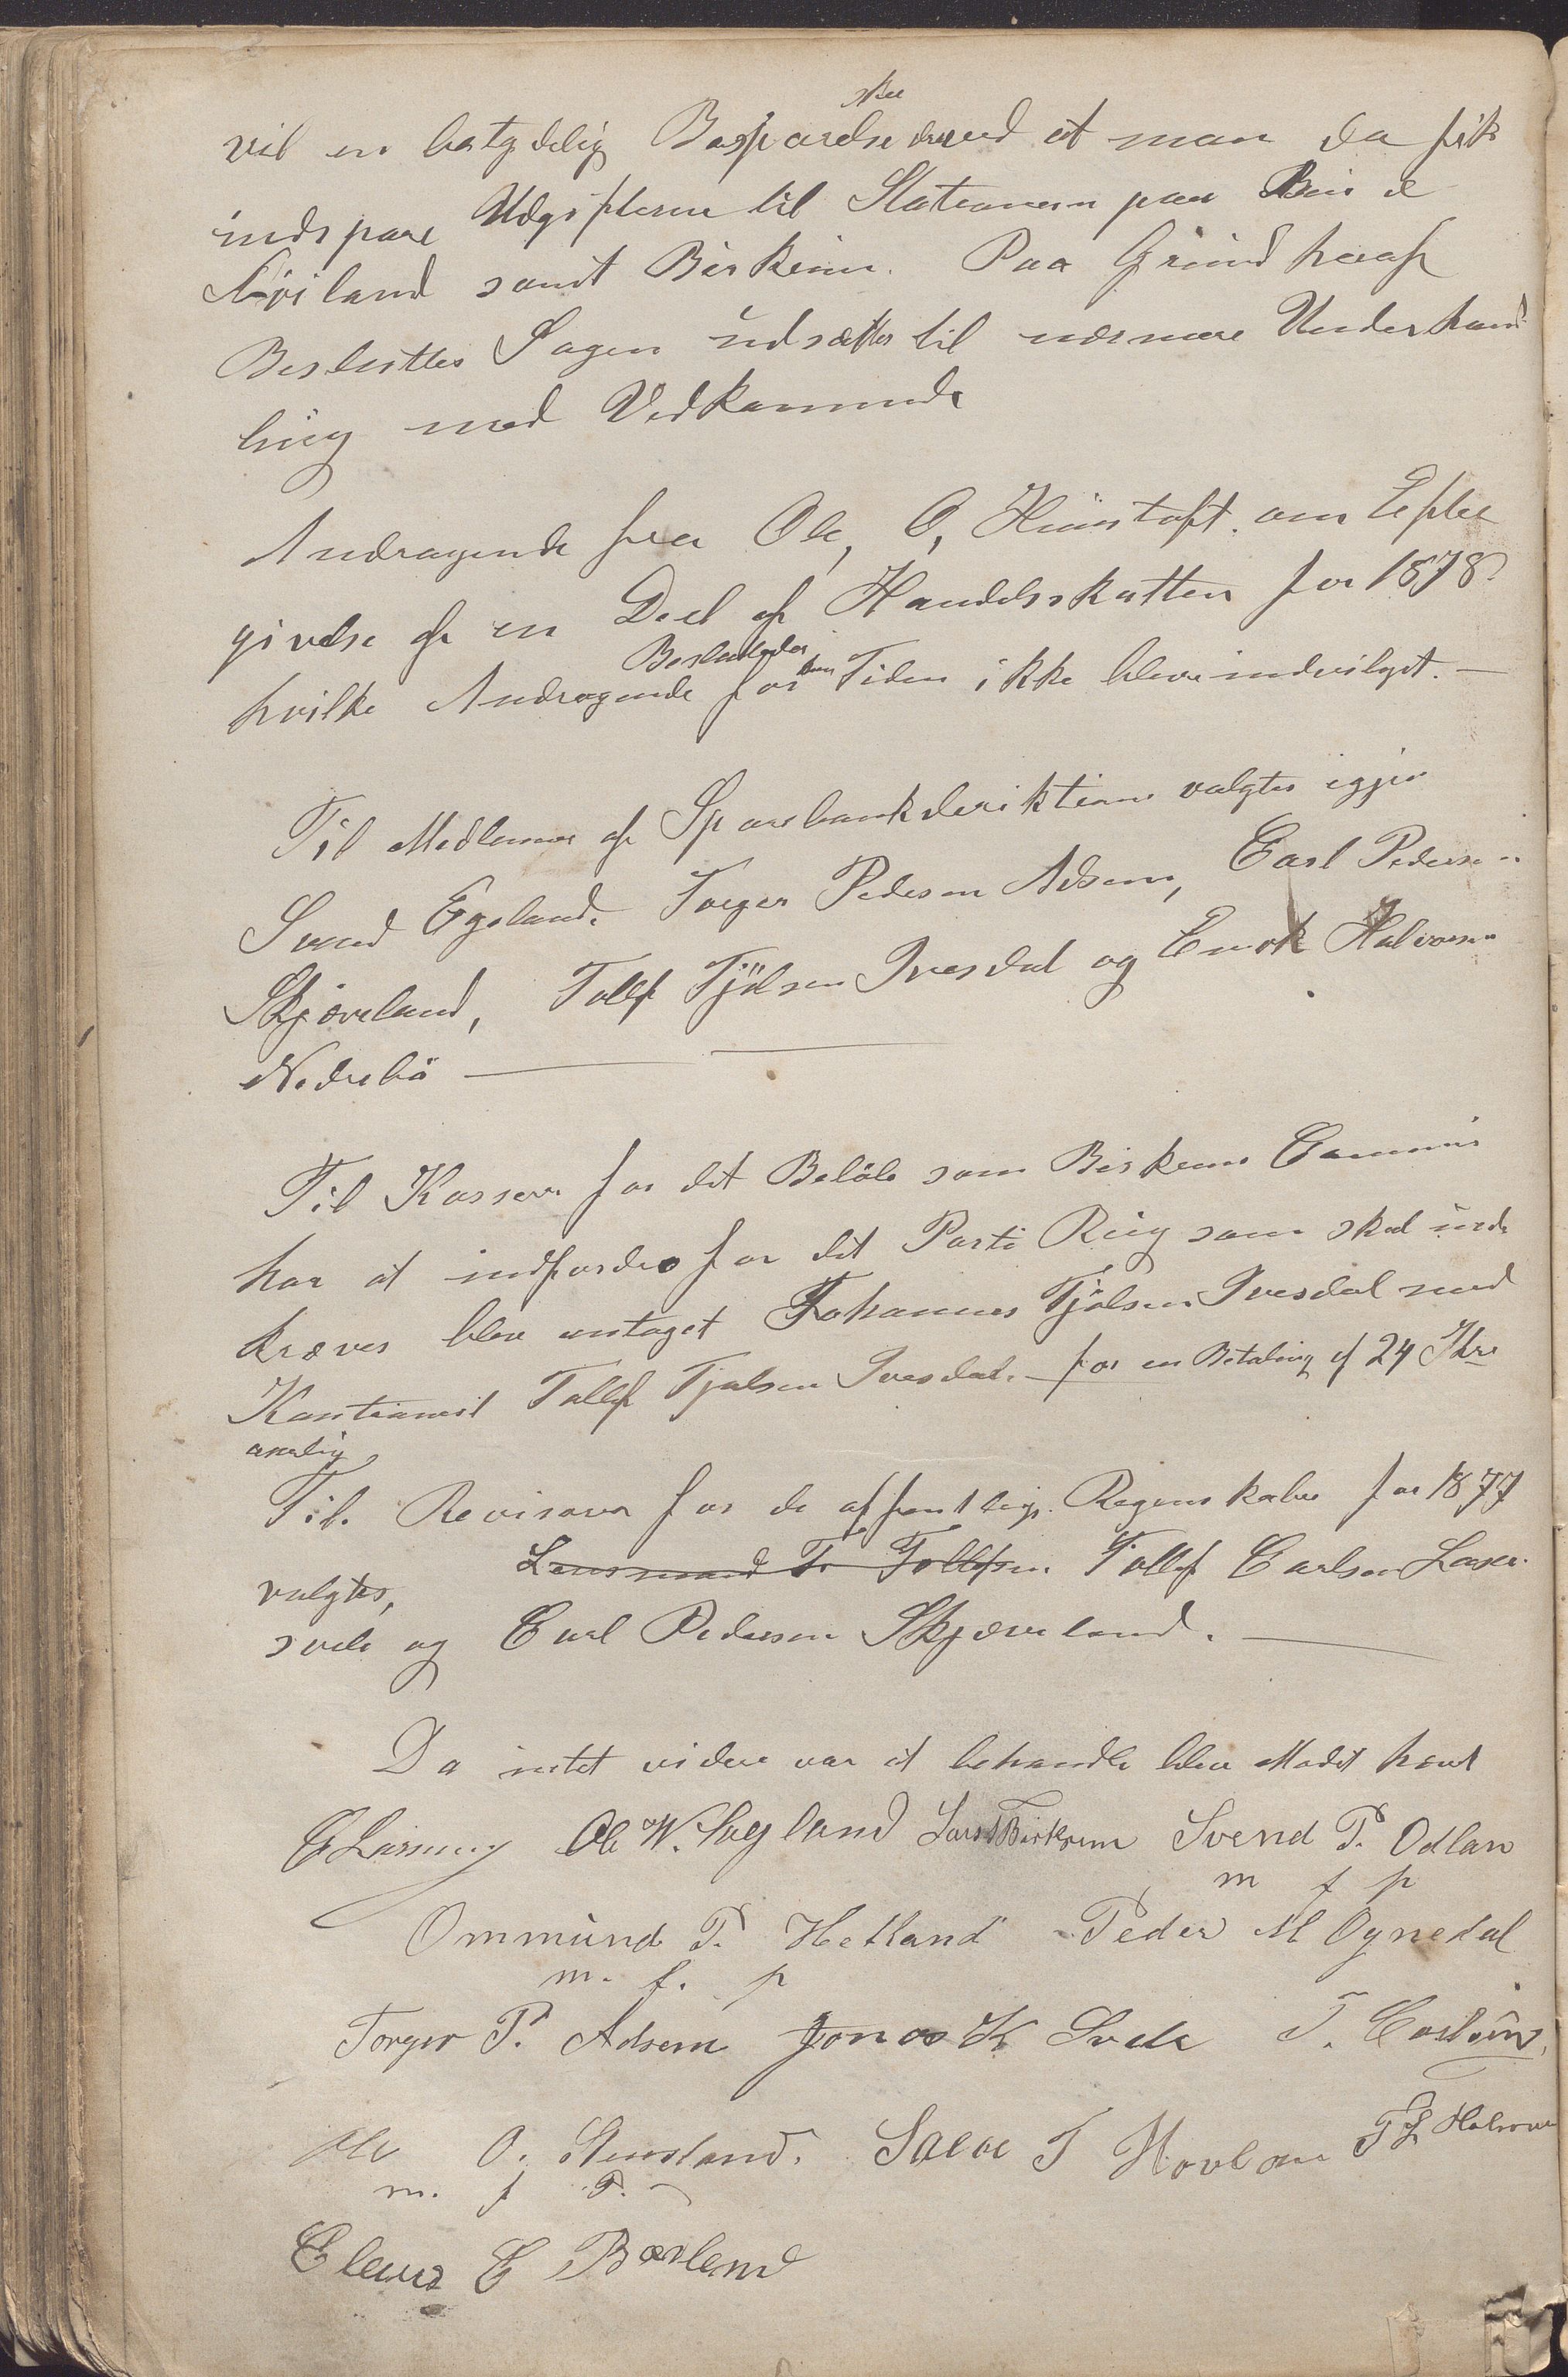 skee
vil en betydelig Besparelse derved at man da fik
indspare Udgifterne til Stationern paa Bui &
Löiland samt Birkrim. Paa Grund heraf
Besluttes Sagen udsættes til nærmere Underhand
ling med Vedkommende
Andragende fra Ole, O, Humstoft. om Efter
givelse af en Deel af Handelsskatten for 1878
Besluttedes
hvilke Andragende for Tiden ikke blev indvilget. —
Til Medlemmer af Sparebankderiktion valgtes igjen
Svend Egeland. Torger Pedersen Adsem, Carl Pedersen
Skjæveland, Tollf Tjölsen Ivesdal og Enok Halvorsen
Nedrebö —
Til Kasserer for det Beløb som Birkrem Commune
har at indfordre for det Parti Rug som skal ind
kræves blev antaget Johannes Tjölsen Ivesdal med
Kantionist Tollf Tjølsen Ivesdal. for en Betaling af 24 Skr
aarlig
Til. Revisorer for de offentlige Regnskaber for 1877
valgtes, Lensmand T. Tollefsen Tollf Carlsen Laxe-
svele og Carl Pedersen Skjæveland. —
Da intet videre var at behandle blev Mødet hævt
Ole W. Søyland Lars Birkrem Svend P. Odlan
m f p
Ommund P. Hetland Peder M Ognedal
m. f. p
Torger P. Adsem Jonas K Svele T. Carlsen,
Ole O. Stensland. Salve T Hovlan T Halvorsen
m. f P.
Claus C Bærland